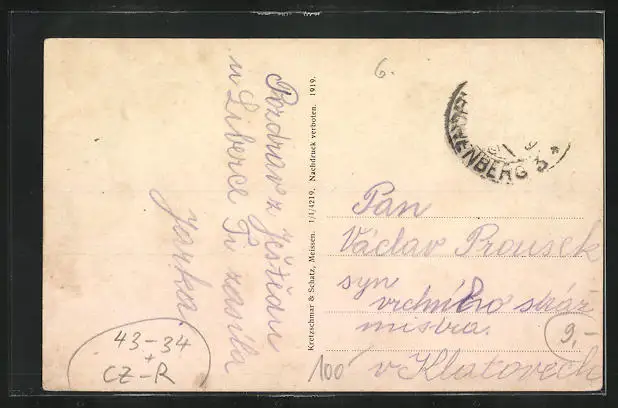 Pozdrav z Ještěau
u Liberce Ti zasílá
Jarka.
Kretzschmar & Schatz, Meissen. 1/I/4219. Nachdruck verboten. 1919.
6.
RENBERG 3 *
Pan
Václav Prousek
syn
vrchního stráž
mistra.
v Klatovech
9,-
100
43-34
+
CZ-R